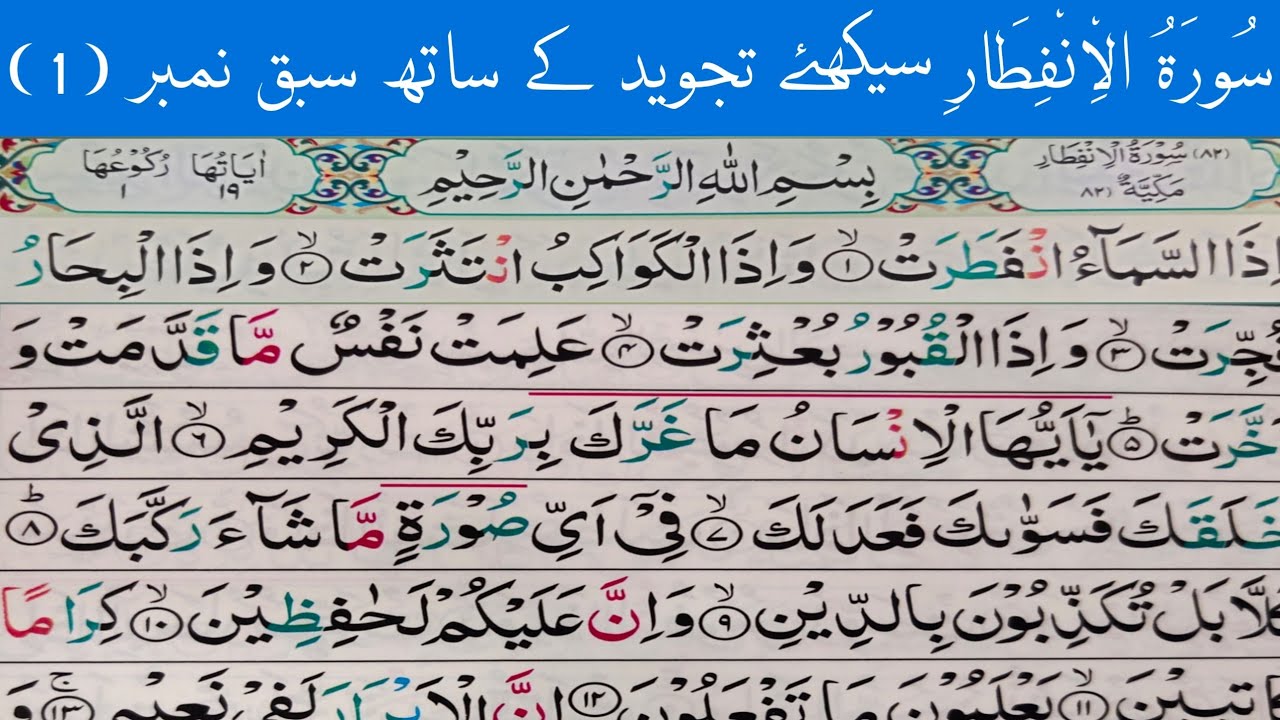 سُورَةُ الْاِنْفِطَارِ سیکھئے تجوید کے ساتھ سبق نمبر (1)
(۸۲) سُوْرَةُ الْاِنْفِطَارِ مَكِّيَّةٌ (۸۲
بِسْمِ اللّٰهِ الرَّحْمٰنِ الرَّحِيْمِ
اٰيَاتُهَا ۱۹ رُكُوْعُهَا ۱
اِذَا السَّمَآءُ انْفَطَرَتْ ۙ‏﴿۱﴾ وَ اِذَا الْكَوَاكِبُ انْتَثَرَتْ ۙ‏﴿۲﴾ وَ اِذَا الْبِحَارُ
فُجِّرَتْ ۙ‏﴿۳﴾ وَ اِذَا الْقُبُوْرُ بُعْثِرَتْ ۙ‏﴿۴﴾ عَلِمَتْ نَفْسٌ مَّا قَدَّمَتْ وَ
اَخَّرَتْ ؕ‏﴿۵﴾ يٰۤاَيُّهَا الْاِنْسَانُ مَا غَرَّكَ بِرَبِّكَ الْكَرِيْمِ ۙ‏﴿۶﴾ الَّذِىْ
خَلَقَكَ فَسَوّٰىكَ فَعَدَلَكَ ۙ‏﴿۷﴾ فِىْۤ اَىِّ صُوْرَةٍ مَّا شَآءَ رَكَّبَكَ ؕ‏﴿۸﴾
كَلَّا بَلْ تُكَذِّبُوْنَ بِالدِّيْنِ ۙ‏﴿۹﴾ وَ اِنَّ عَلَيْكُمْ لَحٰفِظِيْنَ ۙ‏﴿۱۰﴾ كِرَامًا
كَاتِبِيْنَ ۙ‏﴿۱۱﴾ يَعْلَمُوْنَ مَا تَفْعَلُوْنَ ﴿۱۲﴾ اِنَّ الْاَبْرَارَ لَفِىْ نَعِيْمٍ ۚ‏﴿۱۳﴾ وَ